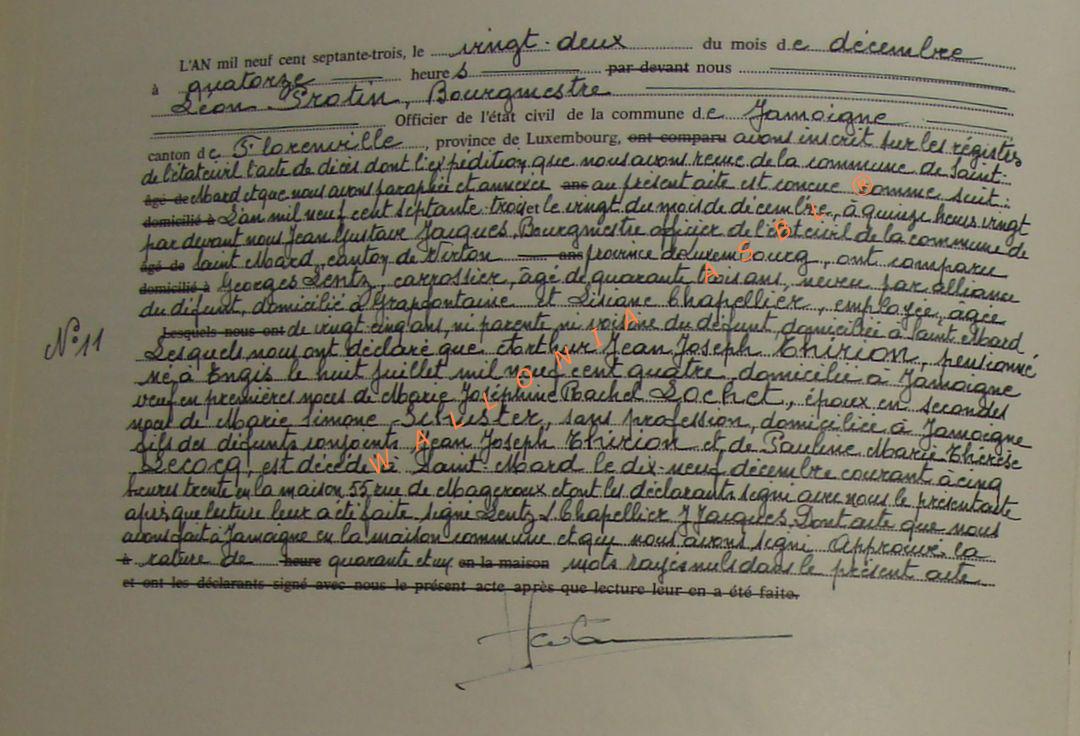 L'AN mil neuf cent septante-trois, le vingt-deux du mois de décembre
à quatorze heures par devant nous
Léon Bourgmestre
Officier de l'état civil de la commune de Jamoigne
canton de Florenville, province de Luxembourg, ont comparu avons inscrit sur les régistres
de l'état civil l'acte de décès dont l'expédition que nous avons reçue de la commune de Saint-
âgé de Mard et que nous avons paraphée et annexée ans au présent acte est conçue comme suit :
domicilié à L'an mil neuf cent septante-trois et le vingt du mois de décembre, à quinze heures vingt
par devant nous Jean Gustave Jacques, Bourgmestre officier de l'état civil de la commune de
âgé de Saint Mard, canton de Virton ans province de Luxembourg, ont comparu
domicilié à Georges Lentz, carrossier, âgé de quarante trois ans, neveu par alliance
du défunt, domicilié à Grapfontaine et Lisiane Chapellier, employée, agée
N° 11
Lesquels nous ont de vingt cinq ans, ni parente ni voisine du défunt domiciliée à Saint Mard
Lesquels nous ont déclaré que Arthur Jean Joseph Thirion, pensionné
né à Engis le huit juillet mil neuf cent quatre domicilié à Jamoigne
veuf en premières noces de Marie Joséphine Rachel Lochet, époux en secondes
noces de Marie Simone Schuster, sans profession, domiciliée à Jamoigne
fils des défunts conjoints Jean Joseph Thirion et de Pauline Marie Thérèse
Lecocq, est décédé à Saint-Mard le dix-neuf décembre courant à cinq
heures trente en la maison 55 rue de Mageroux et ont les déclarants signé avec nous le présent acte
après que lecture leur a été faite signé Lentz L Chapellier J Jacques Dont acte que nous
avons fait à Jamoigne en la maison commune et que nous avons signé Approuvé la
à rature de heure quarante et un en la maison mots rayés nuls dans le présent acte
et ont les déclarants signé avec nous le présent acte après que lecture leur en a été faite.
WALLONIA ASBL ®